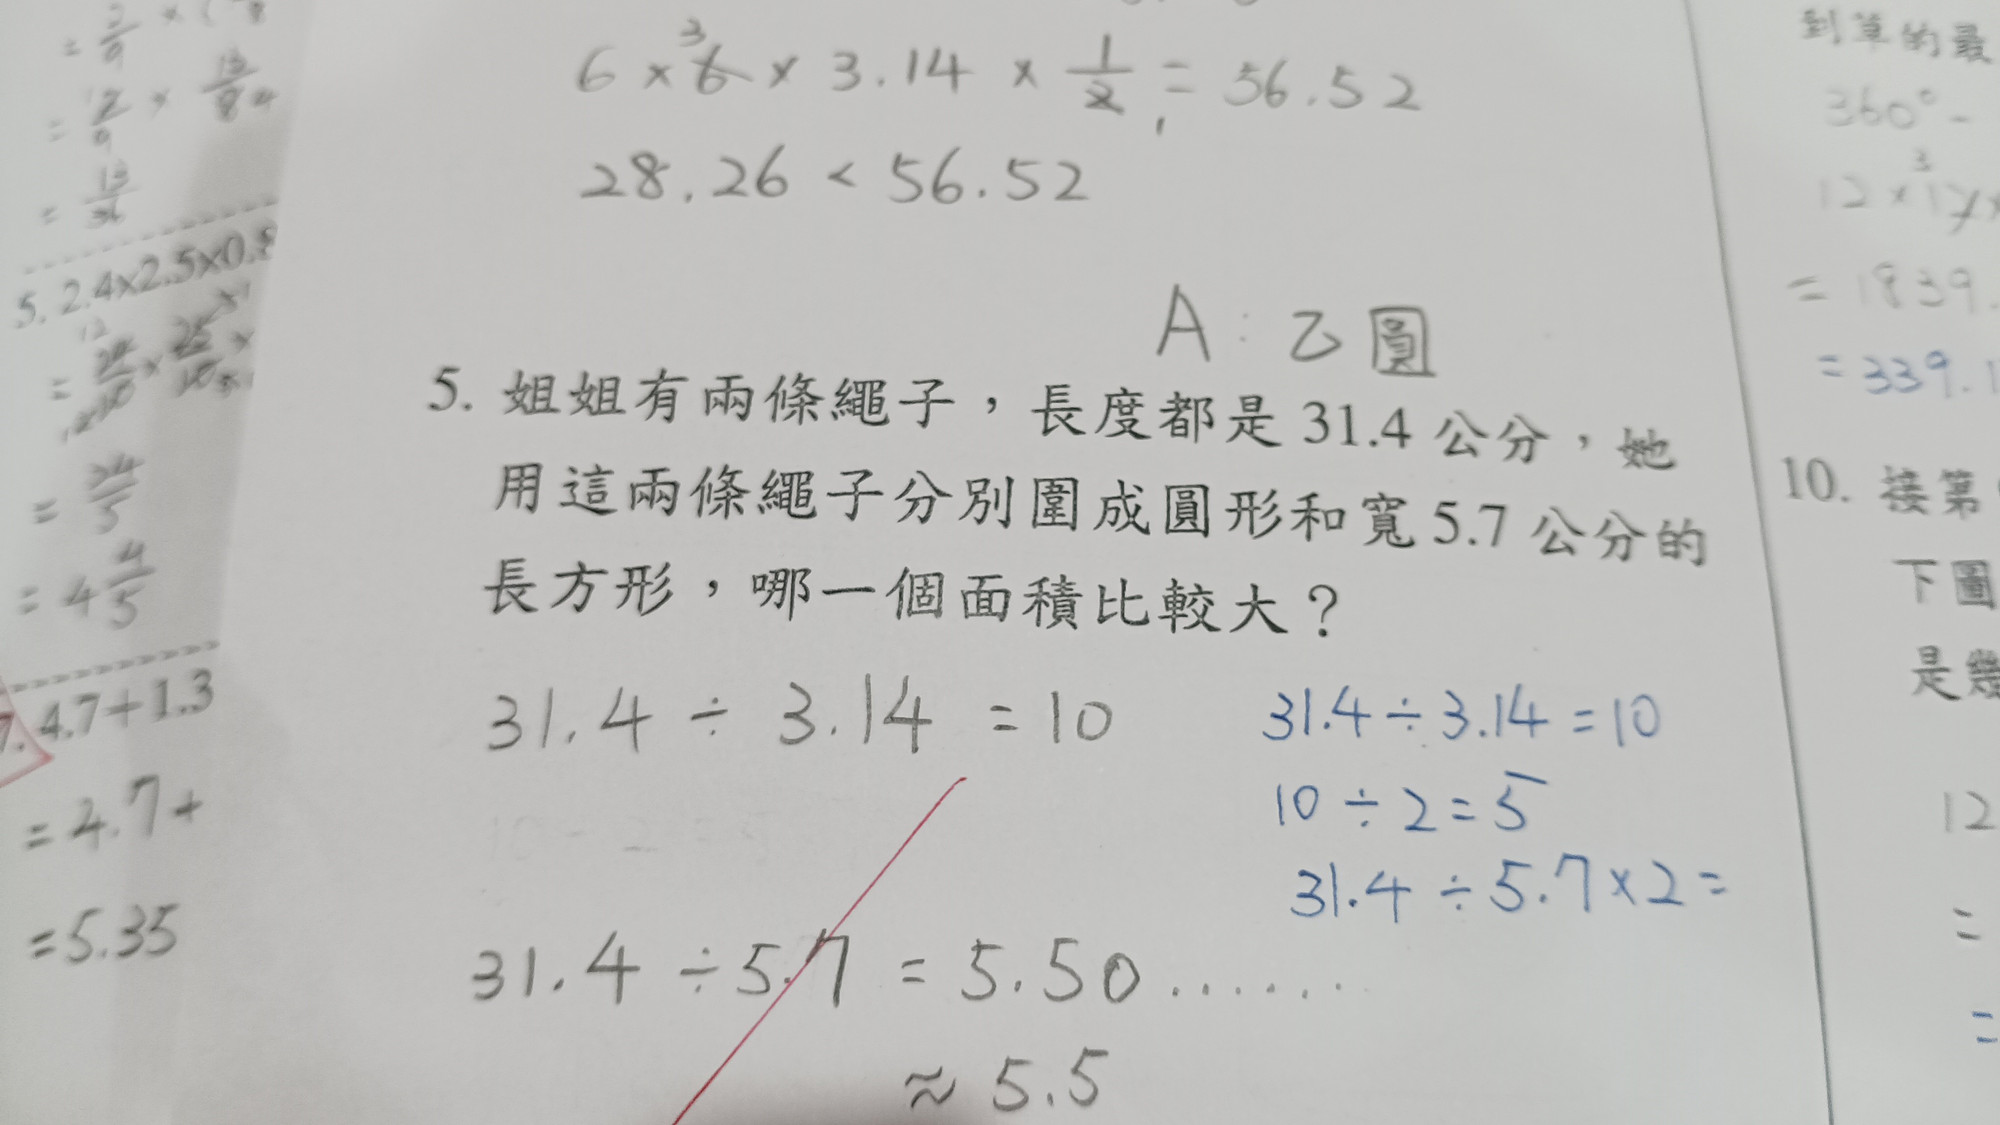 = 2/9 × (
= 12/9 × 13/84
= 13/36
5. 2.4×2.5×0.8
= 24/10 × 25/10 ×
= 24/5
= 4 4/5
4.7+1.3
= 4.7+
= 5.35
6 × 6 3 × 3.14 × 1/2 1 = 56.52
28.26 < 56.52
A: 乙圓
5. 姐姐有兩條繩子，長度都是 31.4 公分，她
用這兩條繩子分別圍成圓形和寬 5.7 公分的
長方形，哪一個面積比較大？
31.4 ÷ 3.14 = 10
31.4 ÷ 5.7 = 5.50.......
≈ 5.5
31.4 ÷ 3.14 = 10
10 ÷ 2 = 5
31.4 ÷ 5.7 × 2 =
到草的最
360° -
12 × 12 3 ×
= 1839.
= 339.1
10. 接第
下圖
是幾
12
=
=